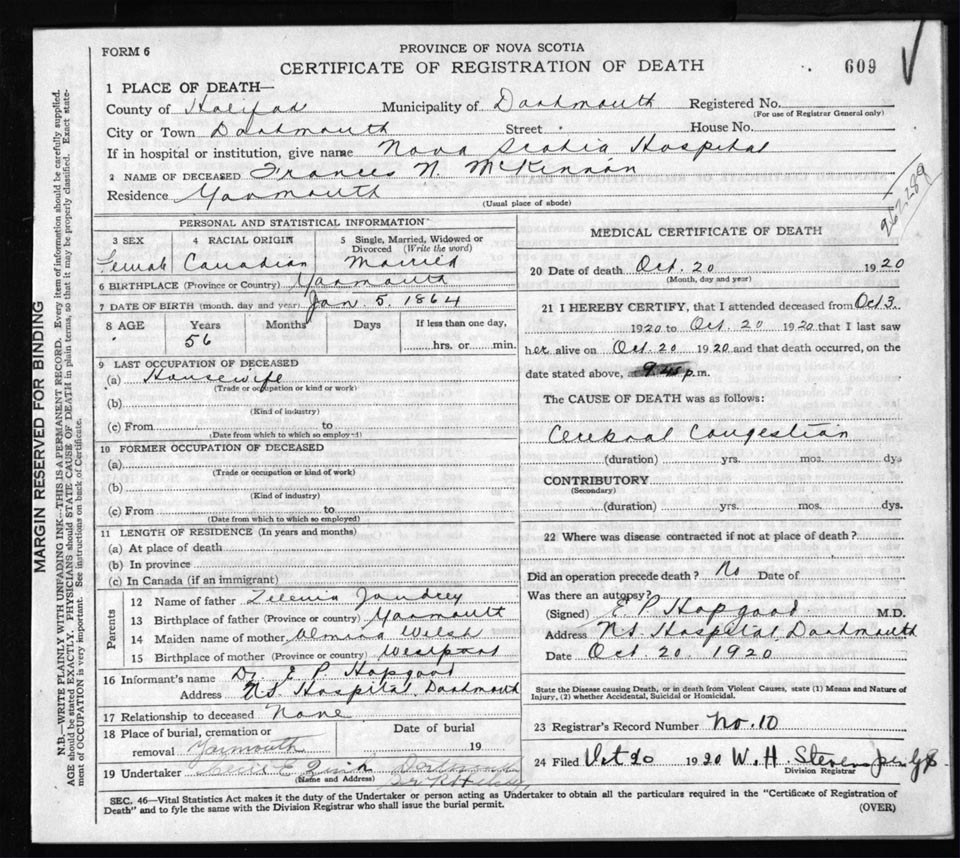 FORM 6
PROVINCE OF NOVA SCOTIA
CERTIFICATE OF REGISTRATION OF DEATH
609
1 PLACE OF DEATH—
County of Halifax Municipality of Dartmouth Registered No.
(For use of Registrar General only)
City or Town Dartmouth Street House No.
If in hospital or institution, give name Nova Scotia Hospital
2 NAME OF DECEASED Frances N. McKinnon
Residence Yarmouth
(Usual place of abode)
262.289
PERSONAL AND STATISTICAL INFORMATION
3 SEX 4 RACIAL ORIGIN 5 Single, Married, Widowed or
Divorced (Write the word)
Female Canadian Married
6 BIRTHPLACE (Province or Country) Yarmouth
7 DATE OF BIRTH (month, day and year) Jan. 5. 1864
8 AGE Years Months Days If less than one day,
56
hrs. or min.
9 LAST OCCUPATION OF DECEASED
(a) Housewife
(Trade or occupation or kind or work)
(b)
(Kind of industry)
(c) From to
(Date from which to which so employed)
10 FORMER OCCUPATION OF DECEASED
(a)
(Trade or occupation or kind of work)
(b)
(Kind of industry)
(c) From to
(Date from which to which so employed)
11 LENGTH OF RESIDENCE (In years and months)
(a) At place of death
(b) In province
(c) In Canada (if an immigrant)
Parents
12 Name of father
13 Birthplace of father (Province or country) Yarmouth
14 Maiden name of mother Welsh
15 Birthplace of mother (Province or country) Westport
16 Informant's name Dr. E P. Hopgood
Address N.S. Hospital, Dartmouth
17 Relationship to deceased None
18 Place of burial, cremation or Date of burial
removal Yarmouth 19
19 Undertaker
(Name and Address)
MEDICAL CERTIFICATE OF DEATH
20 Date of death Oct. 20 1920
(Month, day and year)
21 I HEREBY CERTIFY, that I attended deceased from Oct 3.
1920 to Oct. 20 1920 that I last saw
her alive on Oct. 20 1920 and that death occurred, on the
date stated above, at p.m.
The CAUSE OF DEATH was as follows:
Cerebral Congestion
(duration) yrs. mos. dys
CONTRIBUTORY
(Secondary)
(duration) yrs. mos. dys.
22 Where was disease contracted if not at place of death?
Did an operation precede death? No Date of
Was there an autopsy?
(Signed) E P. Hopgood M.D.
Address N.S. Hospital, Dartmouth
Date Oct. 20. 1920
State the Disease causing Death, or in death from Violent Causes, state (1) Means and Nature of
Injury, (2) whether Accidental, Suicidal or Homicidal.
23 Registrar's Record Number No. 10
24 Filed Oct 20 1920 W. H. Stevens
Division Registrar
SEC. 46—Vital Statistics Act makes it the duty of the Undertaker or person acting as Undertaker to obtain all the particulars required in the "Certificate of Registration of
Death" and to fyle the same with the Division Registrar who shall issue the burial permit.
(OVER)
MARGIN RESERVED FOR BINDING
N.B.—WRITE PLAINLY WITH UNFADING INK—THIS IS A PERMANENT RECORD. Every item of information should be carefully supplied.
AGE should be stated EXACTLY. PHYSICIANS should STATE CAUSE OF DEATH in plain terms, so that it may be properly classified. Exact state-
ment of OCCUPATION is very important. See instructions on back of Certificate.